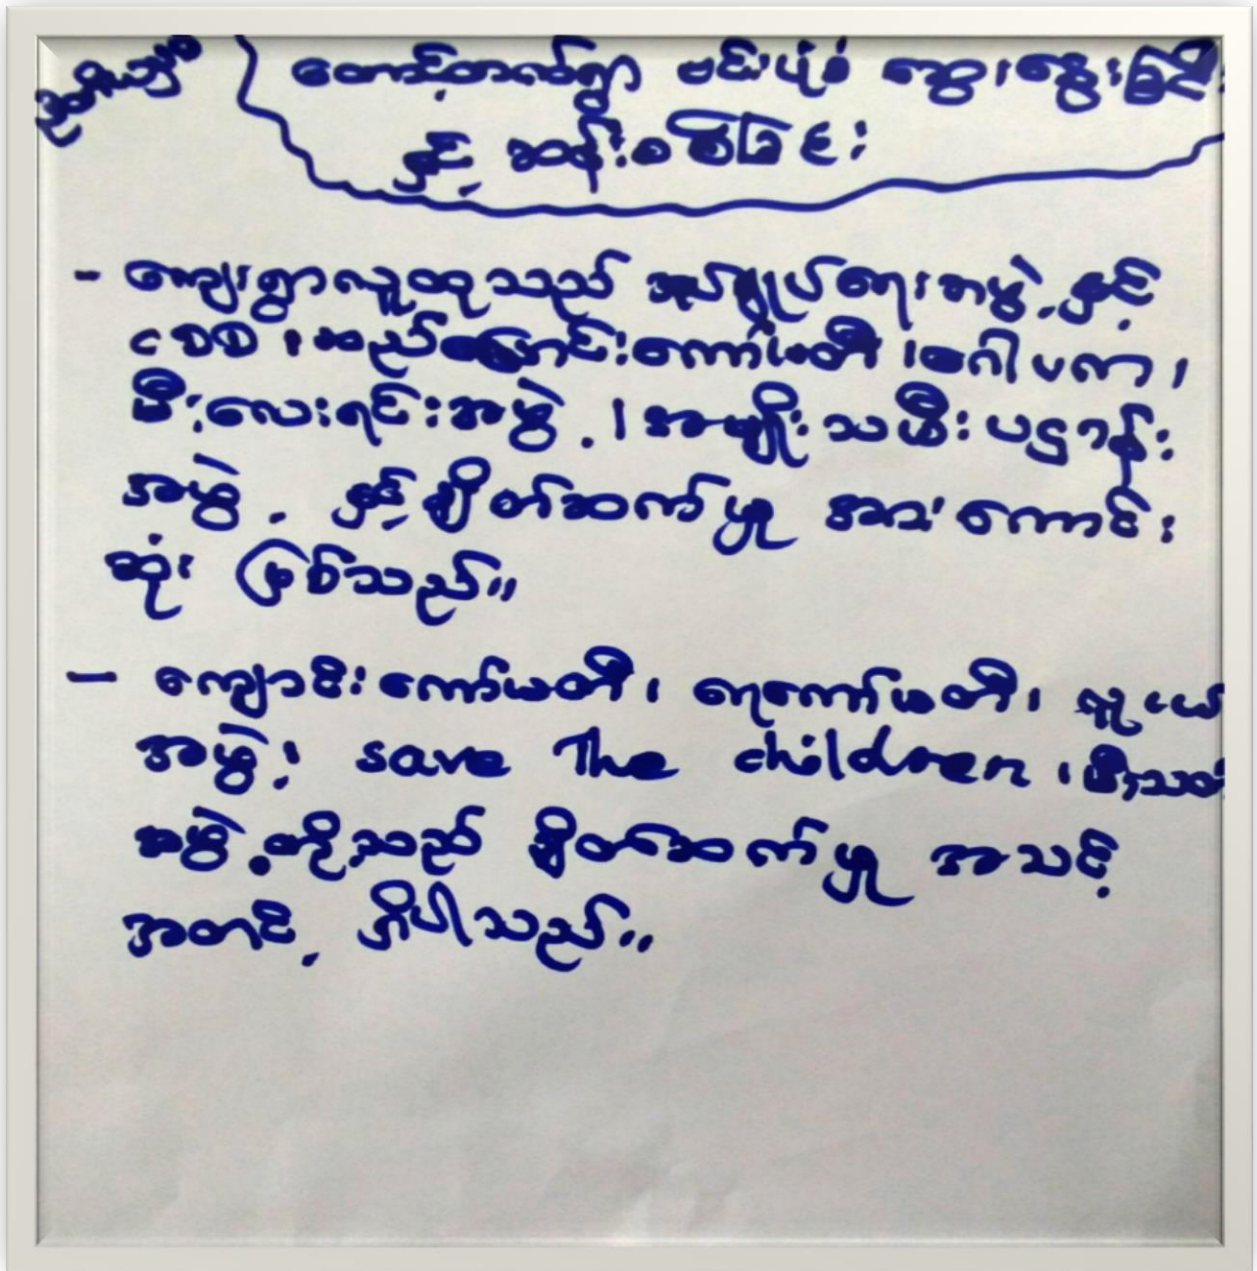 တောင့်တလက်ရွာ ဗင်းပုံစံ ဆွေးနွေးခြင်း
နှင့် ဆန်းစစ်ခြင်း
- ကျေးရွာလူထုသည် အုပ်ချုပ်ရေးအဖွဲ့ နှင့်
စစ၊ ဆည်မြောင်းကော်မတီ၊ စဂါပကာ၊
မီးလေးရင်းအဖွဲ့၊ အမျိုးသမီးပဌာန်း
အဖွဲ့ နှင့် ချိတ်ဆက်မှု အားကောင်း
ဆုံး ဖြစ်သည်။
- ကျောင်းကော်မတီ၊ ရေကော်မတီ၊ လူငယ်
အဖွဲ့၊ save The children ၊
အဖွဲ့တို့သည် ချိတ်ဆက်မှု အသင့်
အတင့် ရှိပါသည်။